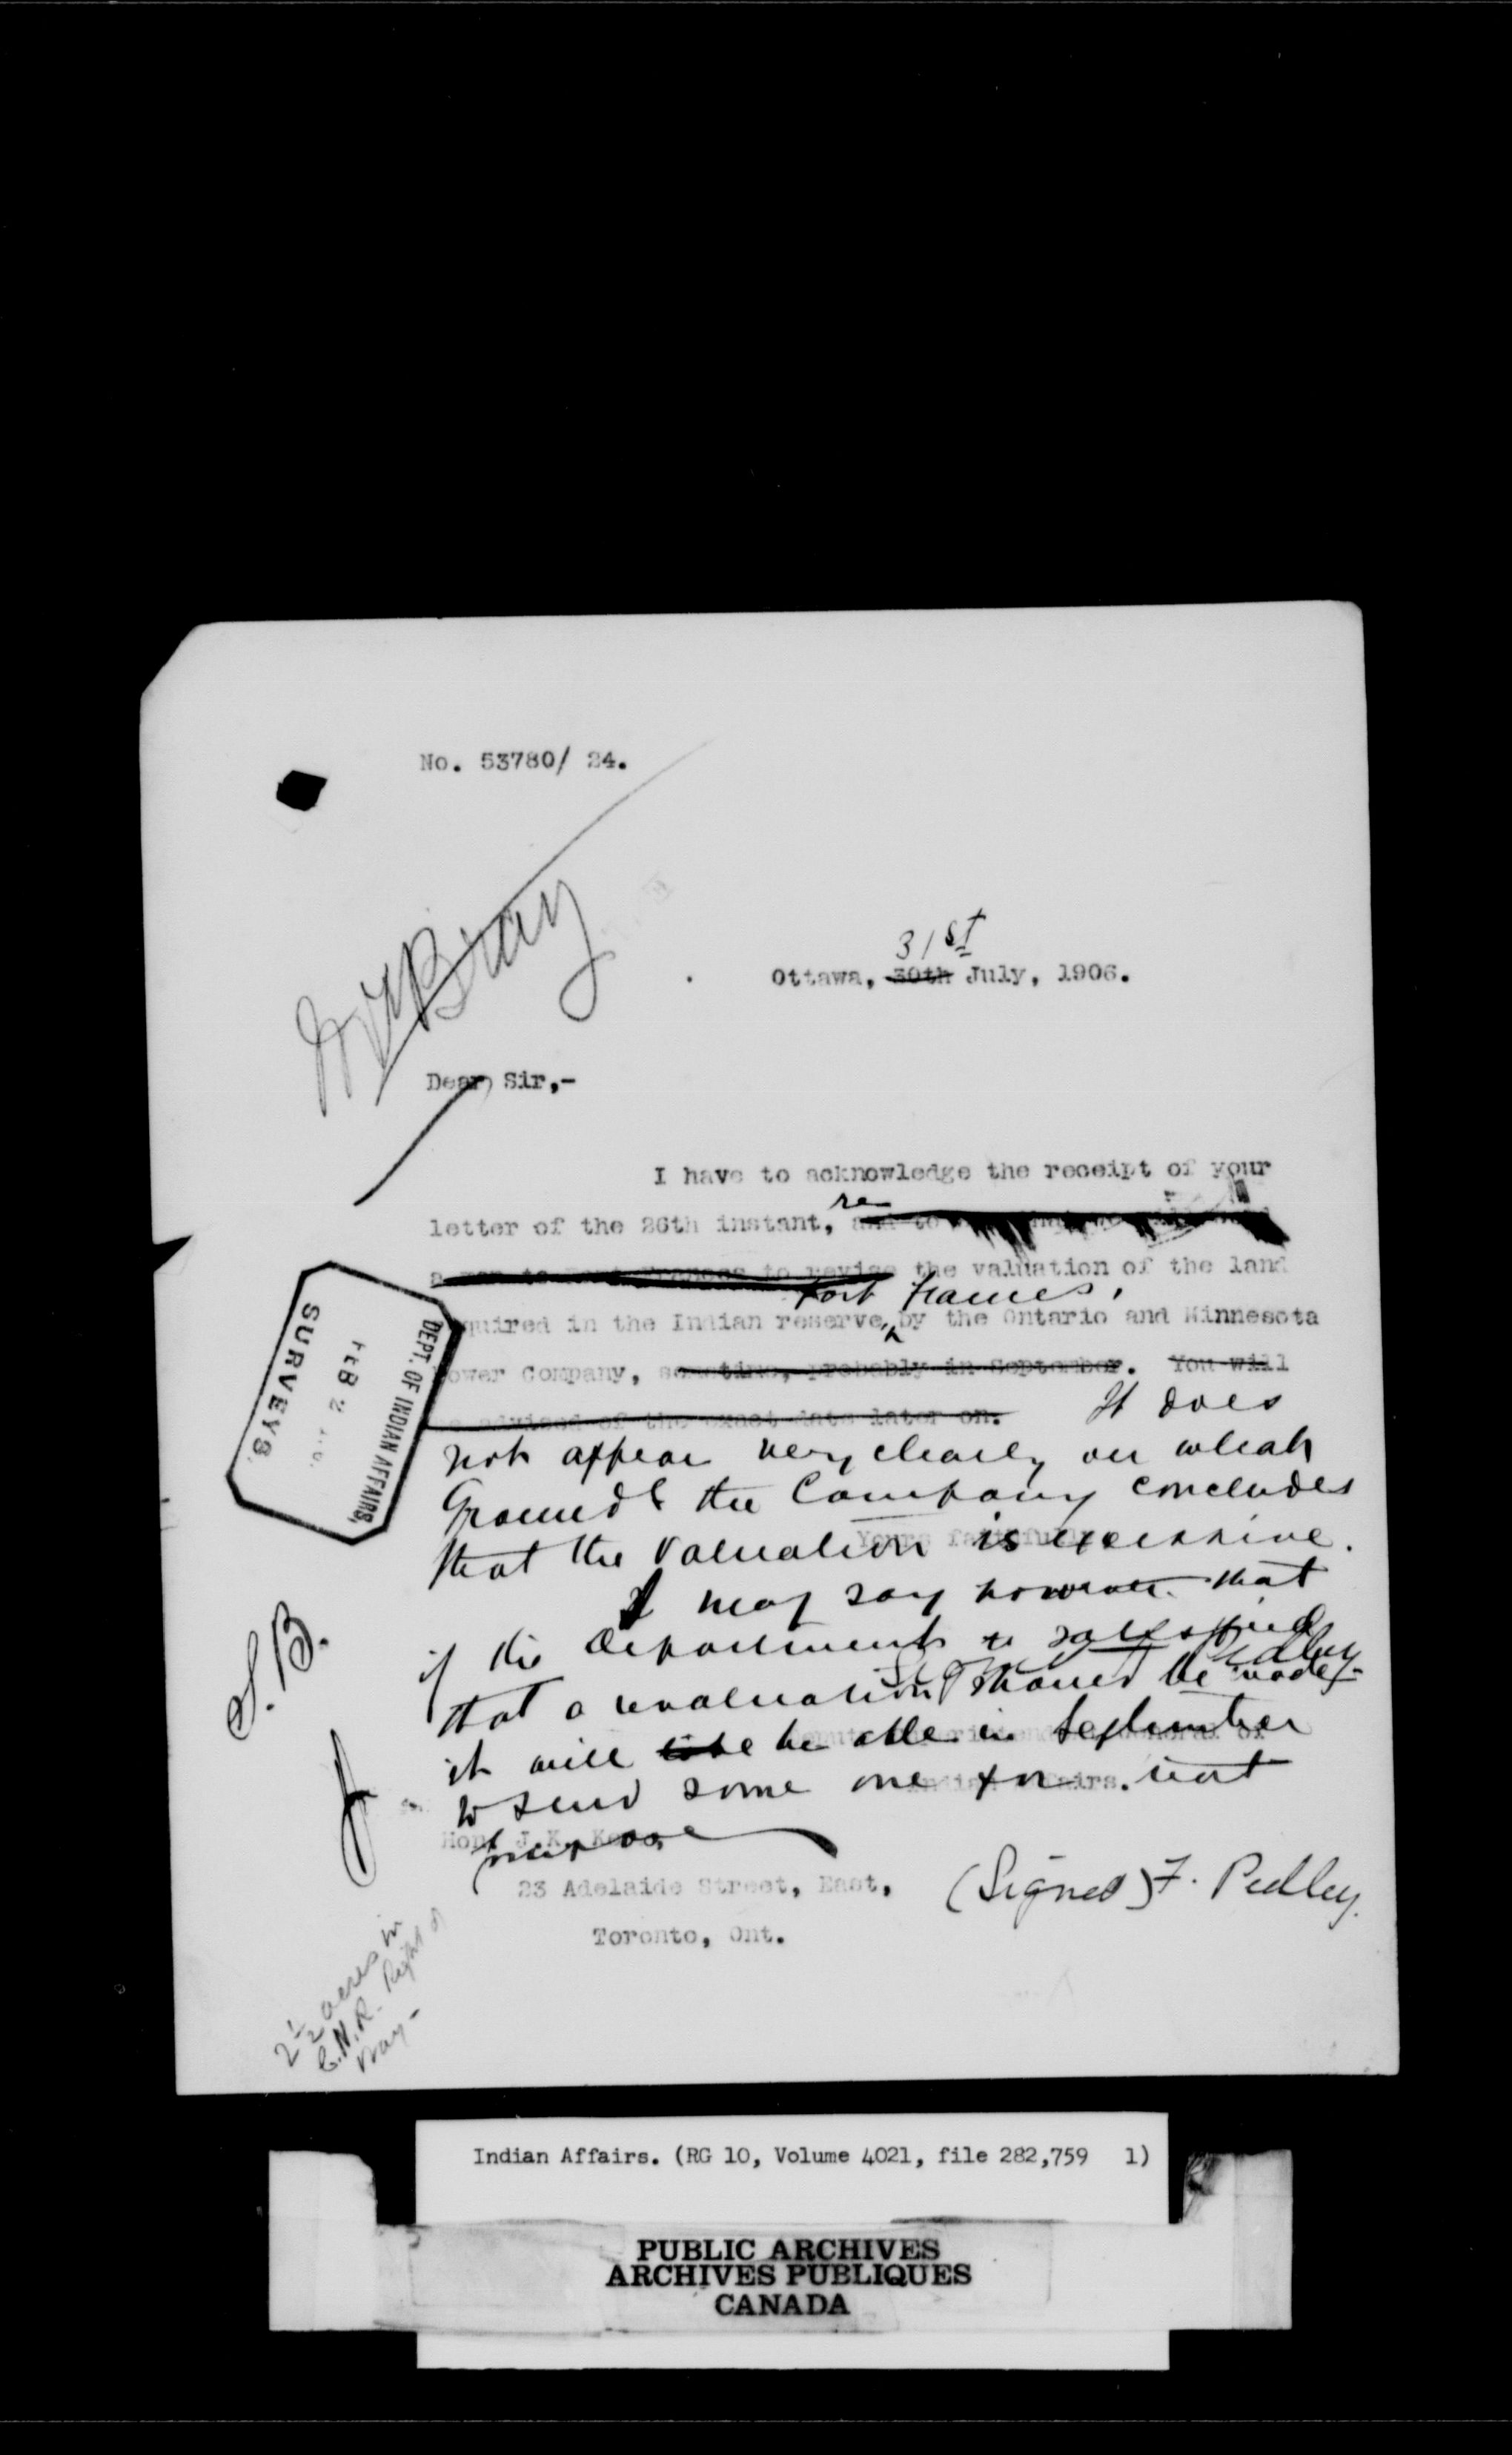 No. 53780/ 24.
Mr Bray
31st
Ottawa, 30th July, 1906.
Dear Sir,-
I have to acknowledge the receipt of your
re
letter of the 26th instant, and to
a man to Fort Frances to revise the valuation of the land
Fort Frances,
required in the Indian reserve, by the Ontario and Minnesota
Power Company, sometime, probably in September. You will
be advised of the exact date later on. It does
not appear very clearly on what
Grounds the Company concludes
that the valuation is excessive.
Yours faithfully
I may say however that
if the Department is satisfied
that a revaluation should be made
it will be able in September
to send some one for that
purpose
Deputy Superintendent General of
Indian Affairs.
Hon. J.K. Kerr,
23 Adelaide Street, East,
Toronto, Ont.
(Signed) F. Pedley.
DEPT. OF INDIAN AFFAIRS,
FEB 2
SURVEYS.
S.B.
2 1/2 acres in
C.N.R. Right of
Way-
Indian Affairs. (RG 10, Volume 4021, file 282,759 1)
PUBLIC ARCHIVES
ARCHIVES PUBLIQUES
CANADA